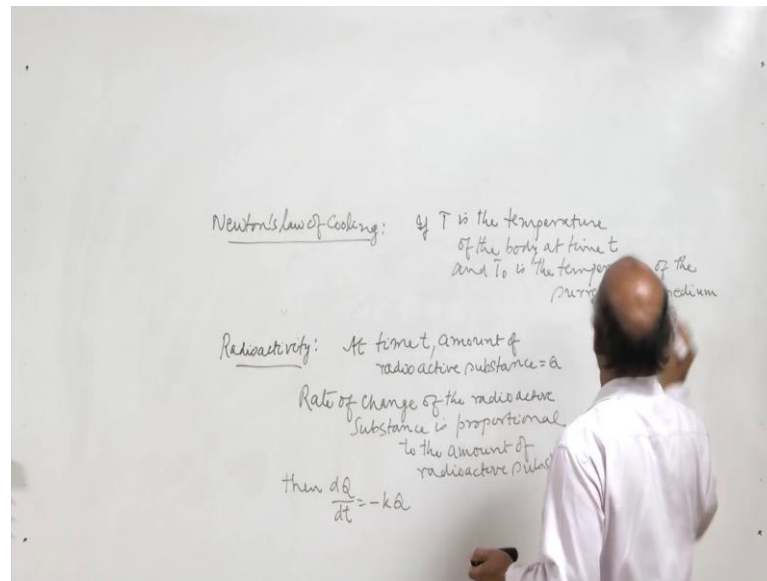 Newton's law of Cooling: If T is the temperature
of the body at time t
and T0 is the temper of the
surr medium
Radioactivity: At time t, amount of
radioactive substance = Q
Rate of change of the radioactive
substance is proportional
to the amount of
radioactive subst
then dQ/dt = -kQ